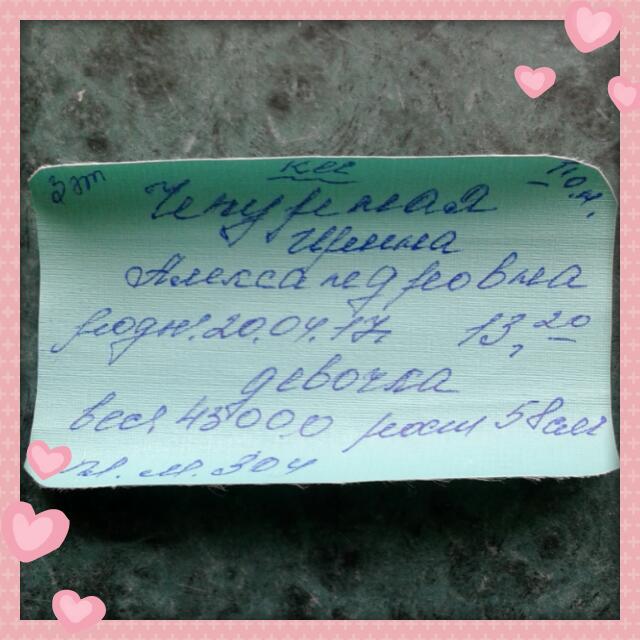 3 эт кес
Чепурная
Ирина
Александровна
родил. 20.04.17. 13,20
девочка
вес: 4500,0 рост 58 см